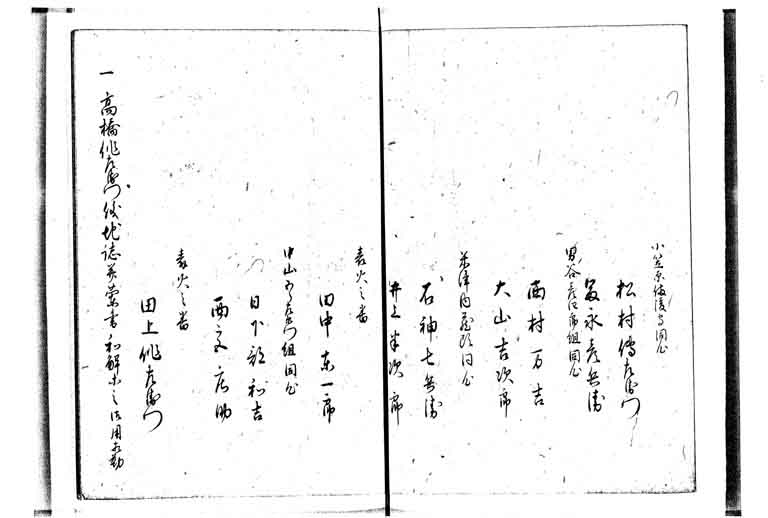 小笠原備後守同心
松村傳左衛門
富永彦兵衛
曽谷彦次郎組同心
西村万吉
大山吉次郎
米津内蔵頭同心
石神七兵衛
井上半次郎
表火之番
田中東一郎
中山五郎左衛門組同心
日下部和吉
西文庄助
表火之番
田上作左衛門
一 高橋作左衛門儀地誌并蛮書和解御用相勤